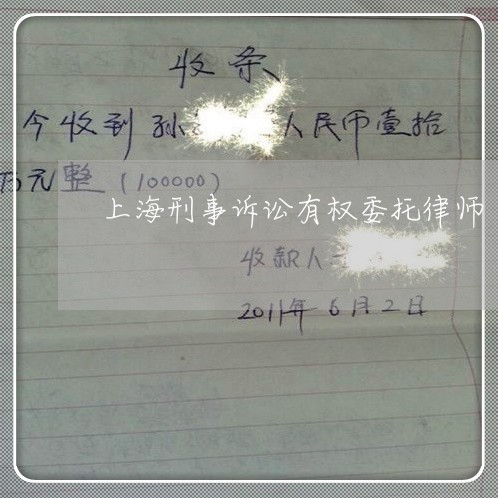 收条
今收到孙 人民币壹拾
万元整（100000）
上海刑事诉讼有权委托律师
收款人
2011年6月2日